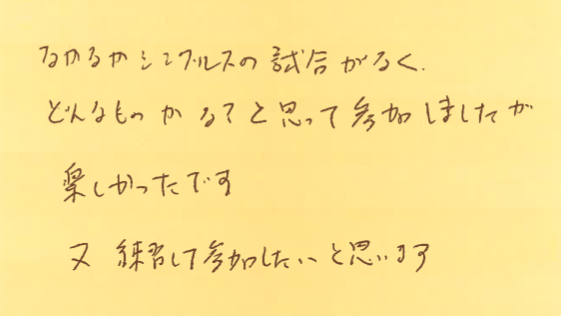 なかなかシングルスの試合がなく.
どんなものかな?と思って参加しましたが
楽しかったです
又 練習して参加したいと思います